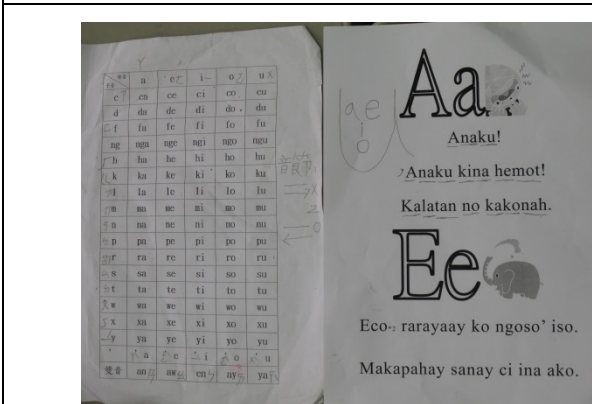 a e i o u
c ca ce ci co cu
d da de di do du
f fa fe fi fo fu
ng nga nge ngi ngo ngu
h ha he hi ho hu
k ka ke ki ko ku
l la le li lo lu
m ma me mi mo mu
n na ne ni no nu
p pa pe pi po pu
r ra re ri ro ru
s sa se si so su
t ta te ti to tu
w wa we wi wo wu
x xa xe xi xo xu
y ya ye yi yo yu
a e i o u
雙音 an aw en ay ya
a e
i
o
Aa
Anaku!
Anaku kina hemot!
Kalatan no kakonah.
Ee
Eco rarayaay ko ngoso' iso.
Makapahay sanay ci ina ako.